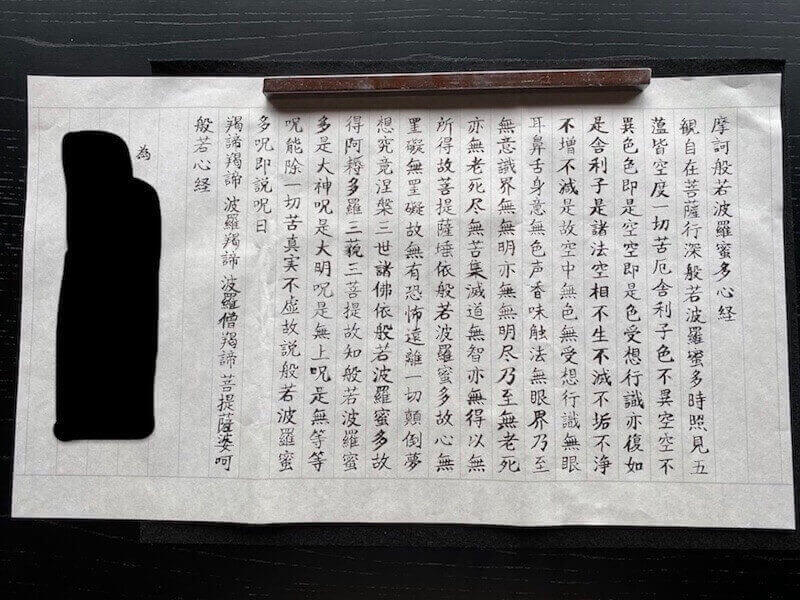 摩訶般若波羅蜜多心経
観自在菩薩行深般若波羅蜜多時照見五
蘊皆空度一切苦厄舎利子色不異空空不
異色色即是空空即是色受想行識亦復如
是舎利子是諸法空相不生不滅不垢不浄
不増不減是故空中無色無受想行識無眼
耳鼻舌身意無色声香味触法無眼界乃至
無意識界無無明亦無無明尽乃至無老死
亦無老死尽無苦集滅道無智亦無得以無
所得故菩提薩埵依般若波羅蜜多故心無
罣礙無罣礙故無有恐怖遠離一切顛倒夢
想究竟涅槃三世諸佛依般若波羅蜜多故
得阿耨多羅三藐三菩提故知般若波羅蜜
多是大神呪是大明呪是無上呪是無等等
呪能除一切苦真実不虚故説般若波羅蜜
多呪即説呪曰
羯諦羯諦 波羅羯諦 波羅僧羯諦 菩提薩婆呵
般若心経
為